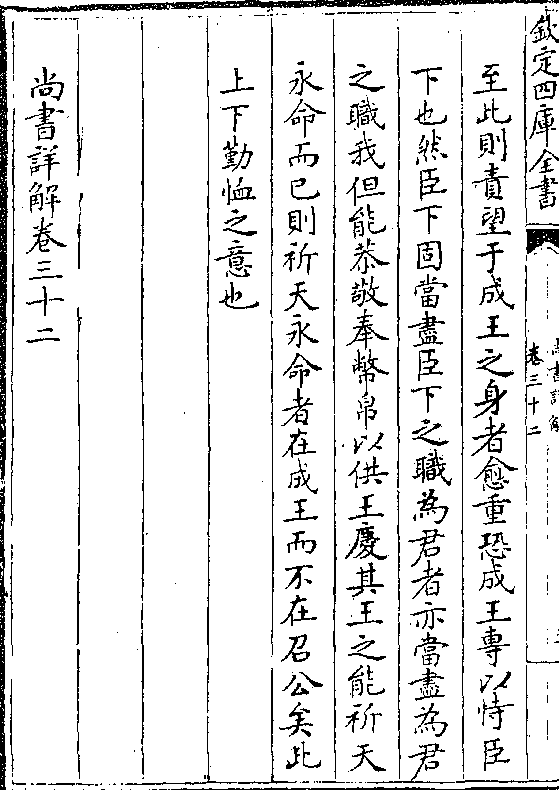 欽定四庫全書
尚書詳解
卷三十二
至此則責望于成王之身者愈重恐成王專以恃臣
下也然臣下固當盡臣下之職為君者亦當盡為君
之職我但能恭敬奉幣帛以供王慶其王之能祈天
永命而已則祈天永命者在成王而不在召公矣此
上下勤恤之意也
尚書詳解卷三十二